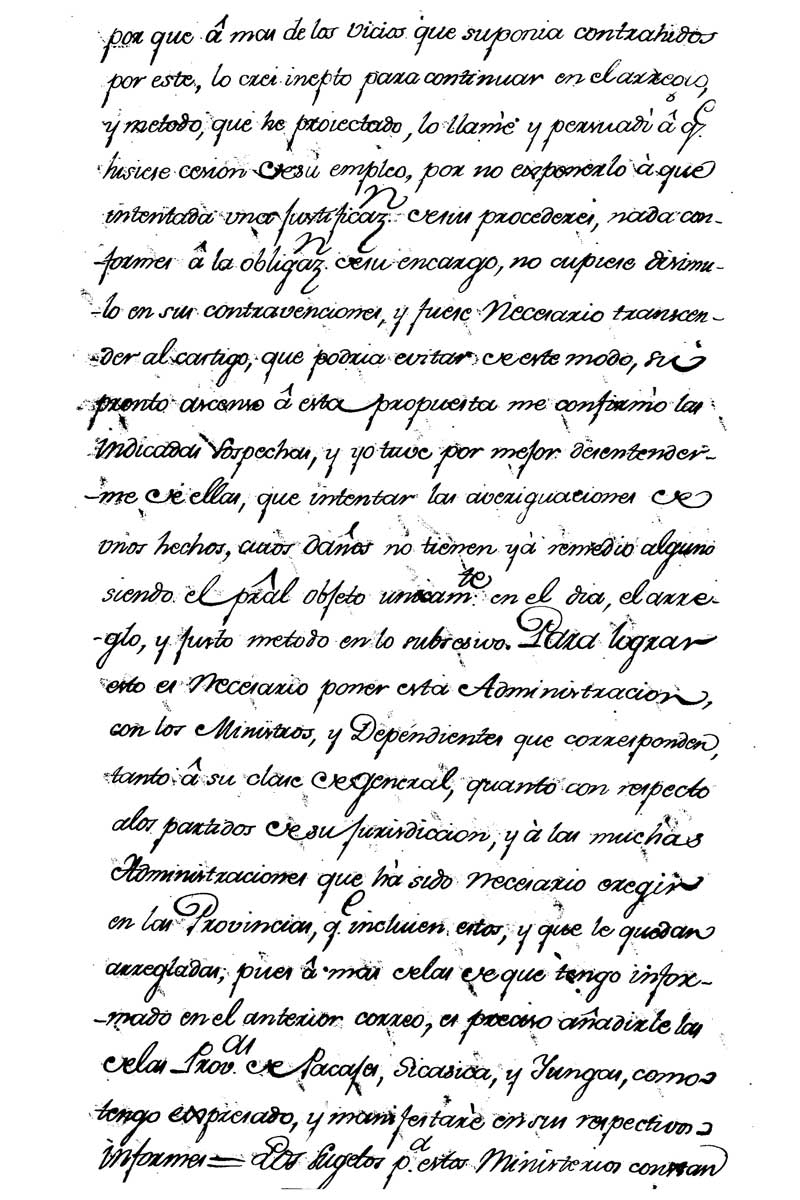 por que â mas de los vicios que suponia contrahidos
por este, lo crei inepto para continuar en el arreglo,
y metodo, que he proiectado, lo llamè y persuadì â q.e
hisiese cesion de sù empleo, por no exponerlo à que
intentada una justificaz.n de sus procederes, nada con-
-formes â la obligaz.n de su encargo, no cupiese disimu-
-lo en sus contravenciones, y fuese Necesario transcen-
-der al castigo, que podria evitar de este modo, sù
pronto ascenso â esta propuesta me confirmò las
indicadas sospechas, y yo tuve por mejor desentender-
-me de ellas, que intentar las averiguaciones de
unos hechos, cuios daños no tienen yà remedio alguno
siendo el prâl objeto unicam.te en el dia, el arre-
-glo, y justo metodo en lo subcesivo. Para lograr
esto es Necesario poner esta Administracion,
con los Ministros, y Dependientes que corresponden,
tanto â su clase de general, quanto con respecto
alos partidos de su jurisdiccion, y à las muchas
Administraciones que hà sido Necesario eregir
en las Provincias, q.e incluien estos, y que le quedan
arregladas, pues â mas delas de que tengo infor-
-mado en el anterior correo, es preciso añadirle las
delas Prov.as de Pacajes, Sicasica, y Yungas, como
tengo expresado, y manifestarè en sus respectivos
informes= Los sugetos p.a estos Ministerios constan